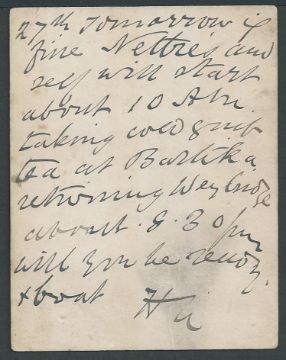 27th Tomorrow if
fine Nettie's and
self will start
about 10 AM
taking cold grub
tea at
returning Weybridge
about 8.30 pm
will you be ready
& boat